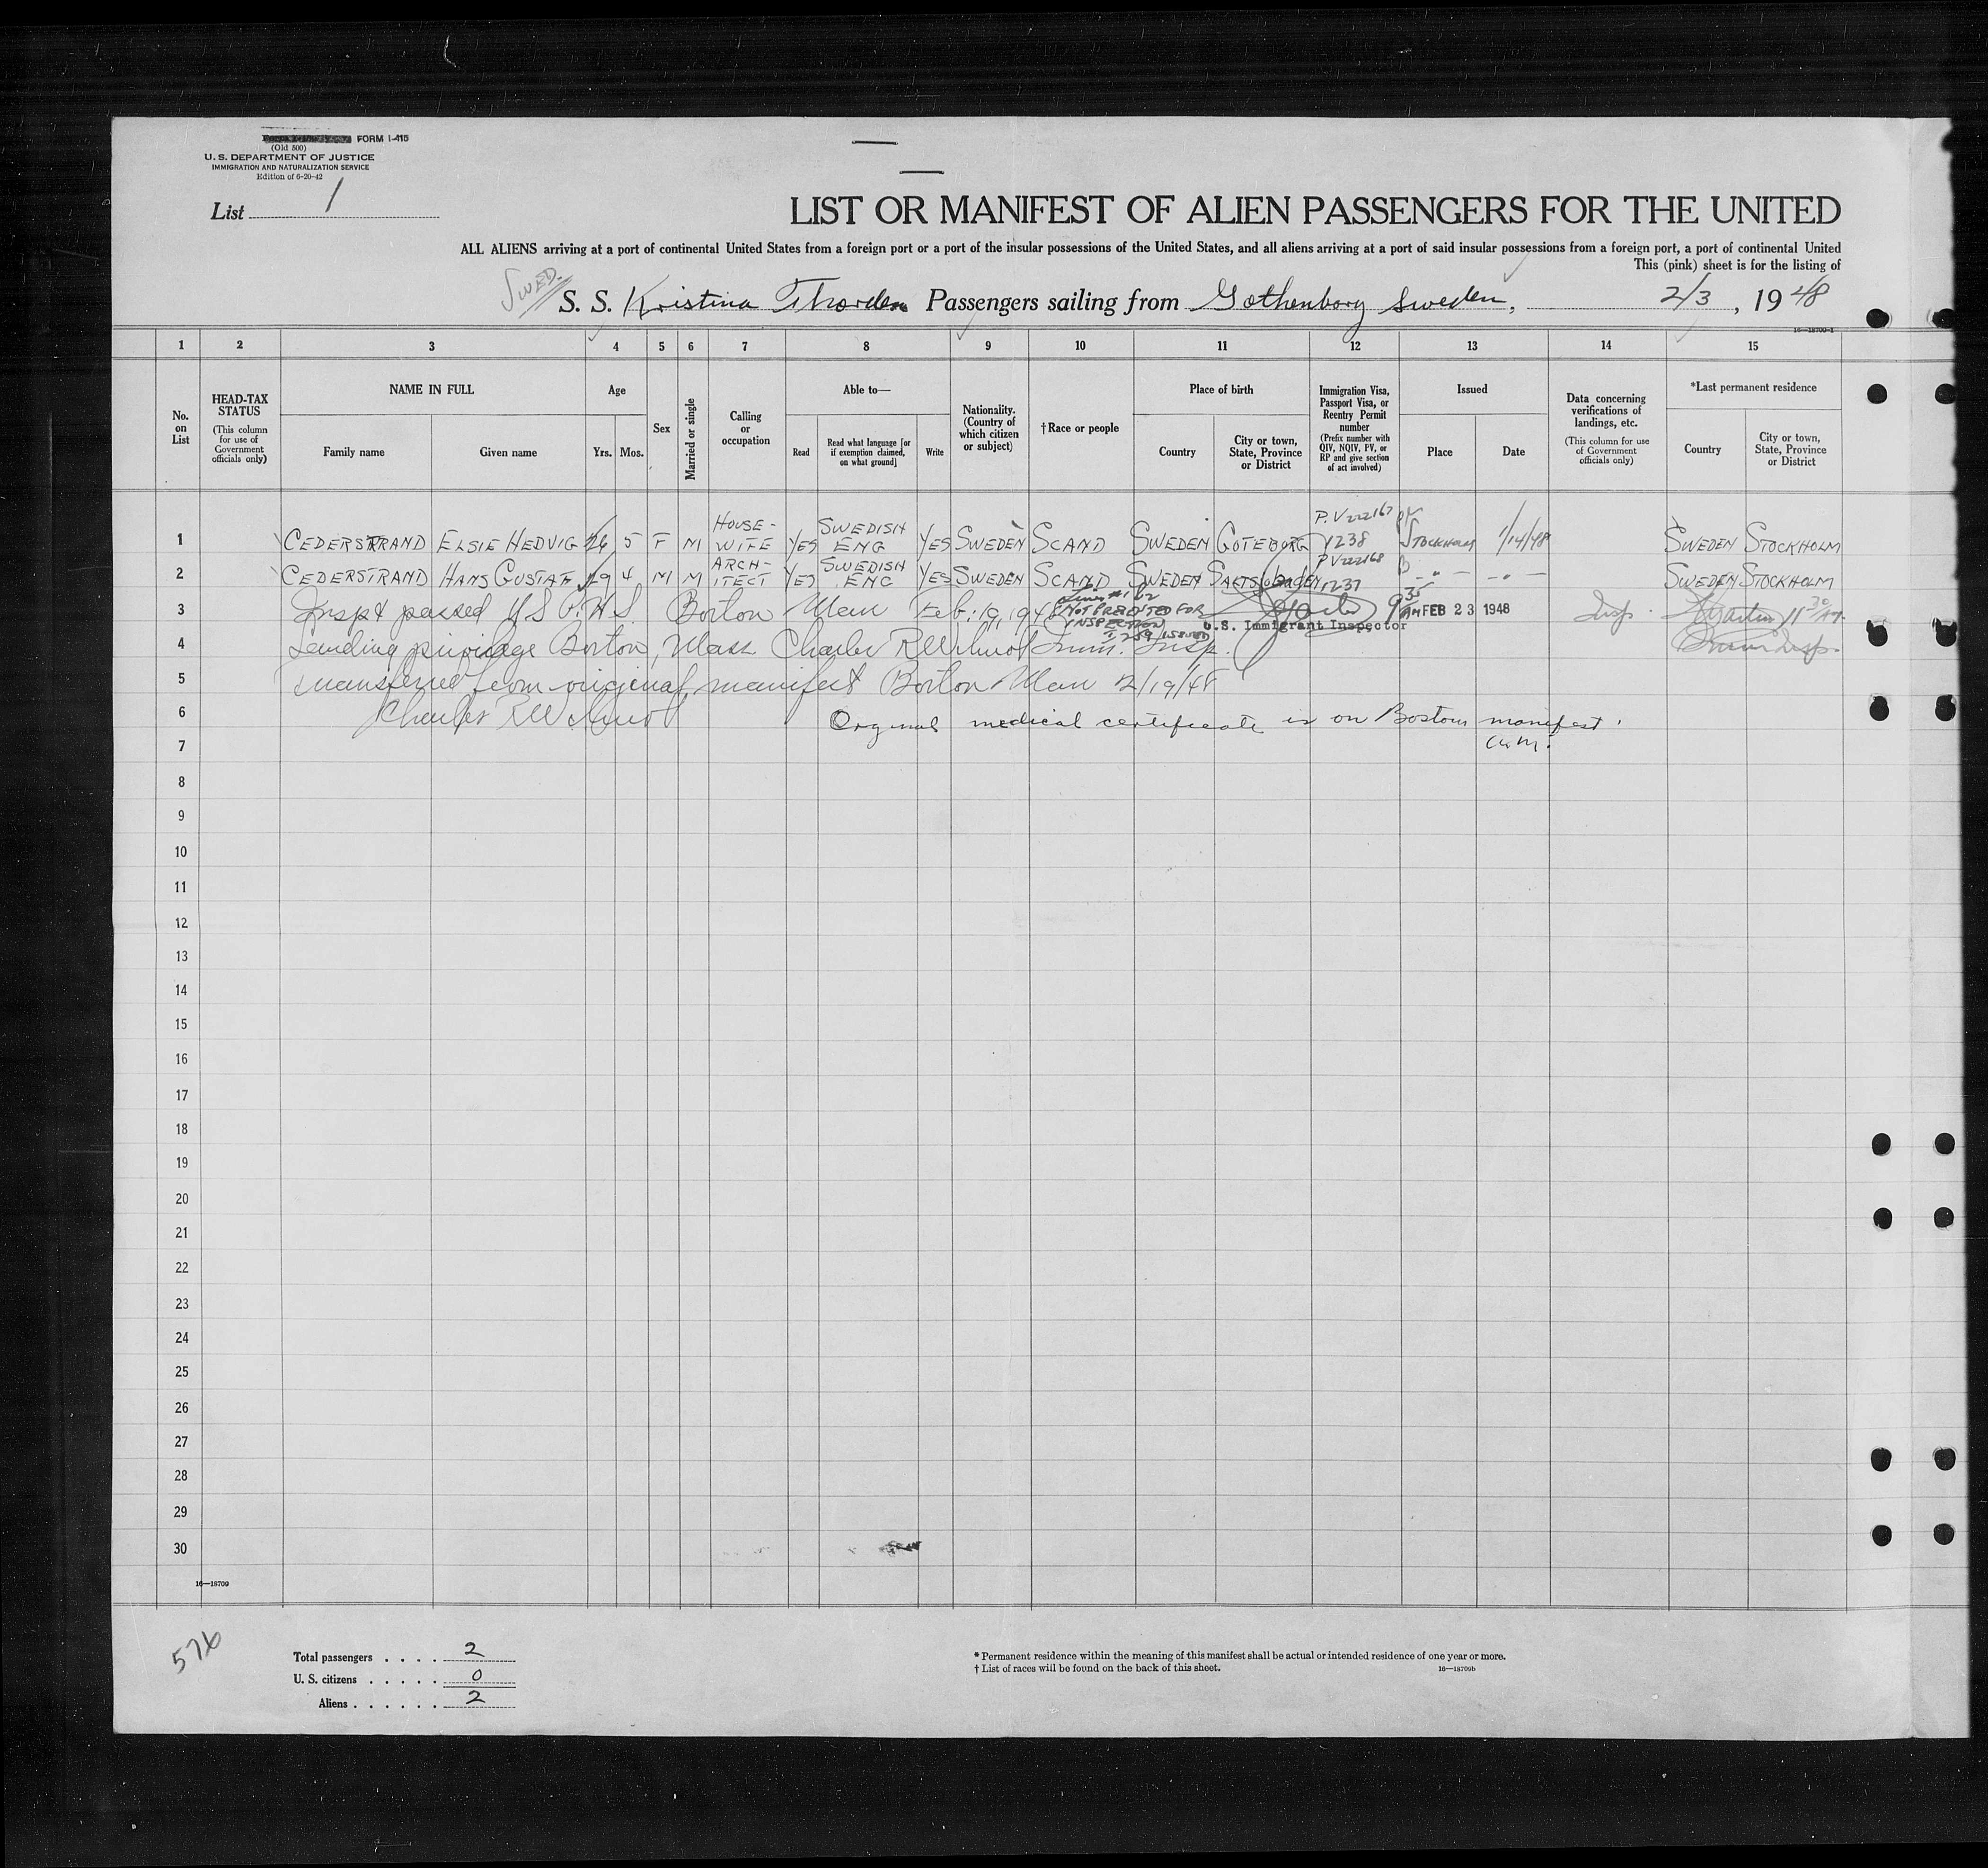 FORM I-415
(Old 500)
U. S. DEPARTMENT OF JUSTICE
IMMIGRATION AND NATURALIZATION SERVICE
Edition of 6-20-42
List 1
LIST OR MANIFEST OF ALIEN PASSENGERS FOR THE UNITED
ALL ALIENS arriving at a port of continental United States from a foreign port or a port of the insular possessions of the United States, and all aliens arriving at a port of said insular possessions from a foreign port, a port of continental United
This (pink) sheet is for the listing of
SWED.
S. S. Kristina Thorden Passengers sailing from Gothenborg Sweden, 2/3, 1948
16—18709-1
1 2 3 4 5 6 7 8 9 10 11 12 13 14 15
No. on List
HEAD-TAX STATUS (This column for use of Government officials only)
NAME IN FULL Family name Given name
Age Yrs. Mos.
Sex
Married or single
Calling or occupation
Able to— Read Read what language [or if exemption claimed, on what ground] Write
Nationality. (Country of which citizen or subject)
†Race or people
Place of birth Country City or town, State, Province or District
Immigration Visa, Passport Visa, or Reentry Permit number (Prefix number with QIV, NQIV, PV, or RP and give section of act involved)
Issued Place Date
Data concerning verifications of landings, etc. (This column for use of Government officials only)
*Last permanent residence Country City or town, State, Province or District
1 CEDERSTRAND ELSIE HEDVIG 26 5 F M HOUSE-WIFE YES SWEDISH ENG YES SWEDEN SCAND SWEDEN GOTEBORG P.V 222167 1238 STOCKHOLM 1/14/48 SWEDEN STOCKHOLM
2 CEDERSTRAND HANS GUSTAF 29 4 M M ARCH-ITECT YES SWEDISH ENG YES SWEDEN SCAND SWEDEN SALTSJOBADEN P V 222168 1237 — " — — " — SWEDEN STOCKHOLM
3 Inspt passed U S P. H S. Boston Mass Feb. 19, 1948 Lines #1 & 2 NOT PRESENTED FOR INSPECTION 9 35 AM FEB 23 1948 Insp. 11 30 AM
U.S. Immigrant Inspector
4 Landing privilege Boston, Mass. Charles R Imm. Insp.
5 transferred from original manifest Boston Mass 2/19/48
6 Charles R
Orginal medical certificate is on Boston manifest.
7
8
9
10
11
12
13
14
15
16
17
18
19
20
21
22
23
24
25
26
27
28
29
30
16—18709
576
Total passengers . . . . 2
U. S. citizens . . . . . 0
Aliens . . . . . . 2
* Permanent residence within the meaning of this manifest shall be actual or intended residence of one year or more.
† List of races will be found on the back of this sheet. 16—18709b